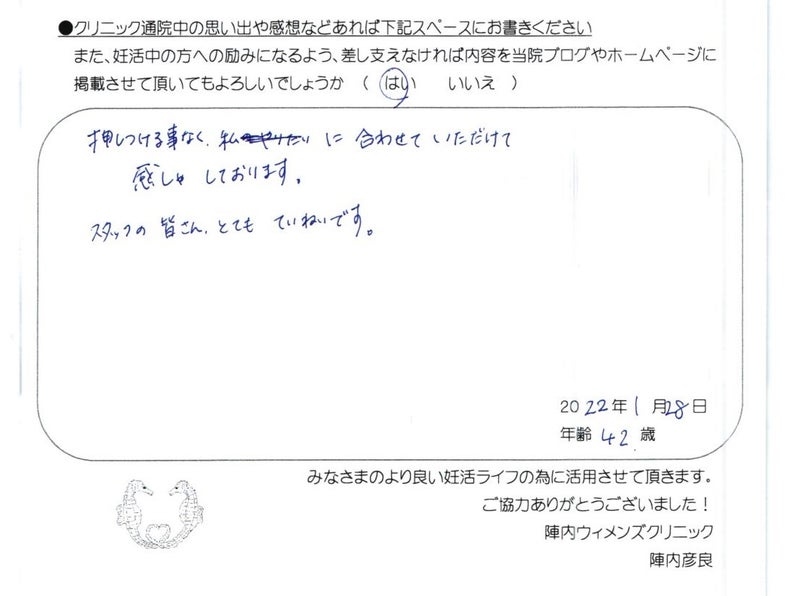 ●クリニック通院中の思い出や感想などあれば下記スペースにお書きください
また、妊活中の方への励みになるよう、差し支えなければ内容を当院ブログやホームページに
掲載させて頂いてもよろしいでしょうか （ はい　　いいえ ）
押しつける事なく、私に合わせていただけて
感しゃしております。
スタッフの皆さん、とてもていねいです。
2022年1月28日
年齢 42 歳
みなさまのより良い妊活ライフの為に活用させて頂きます。
ご協力ありがとうございました！
陣内ウィメンズクリニック
陣内彦良